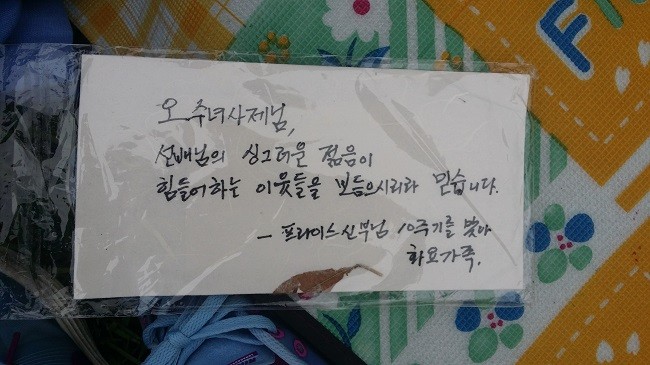 오 주녀사제님,
선배님의 싱그러운 젊음이
힘들어하는 이웃들을 보듬으시리라 믿습니다.
- 프라이스신부님 10주기를 맞아
화요가족.